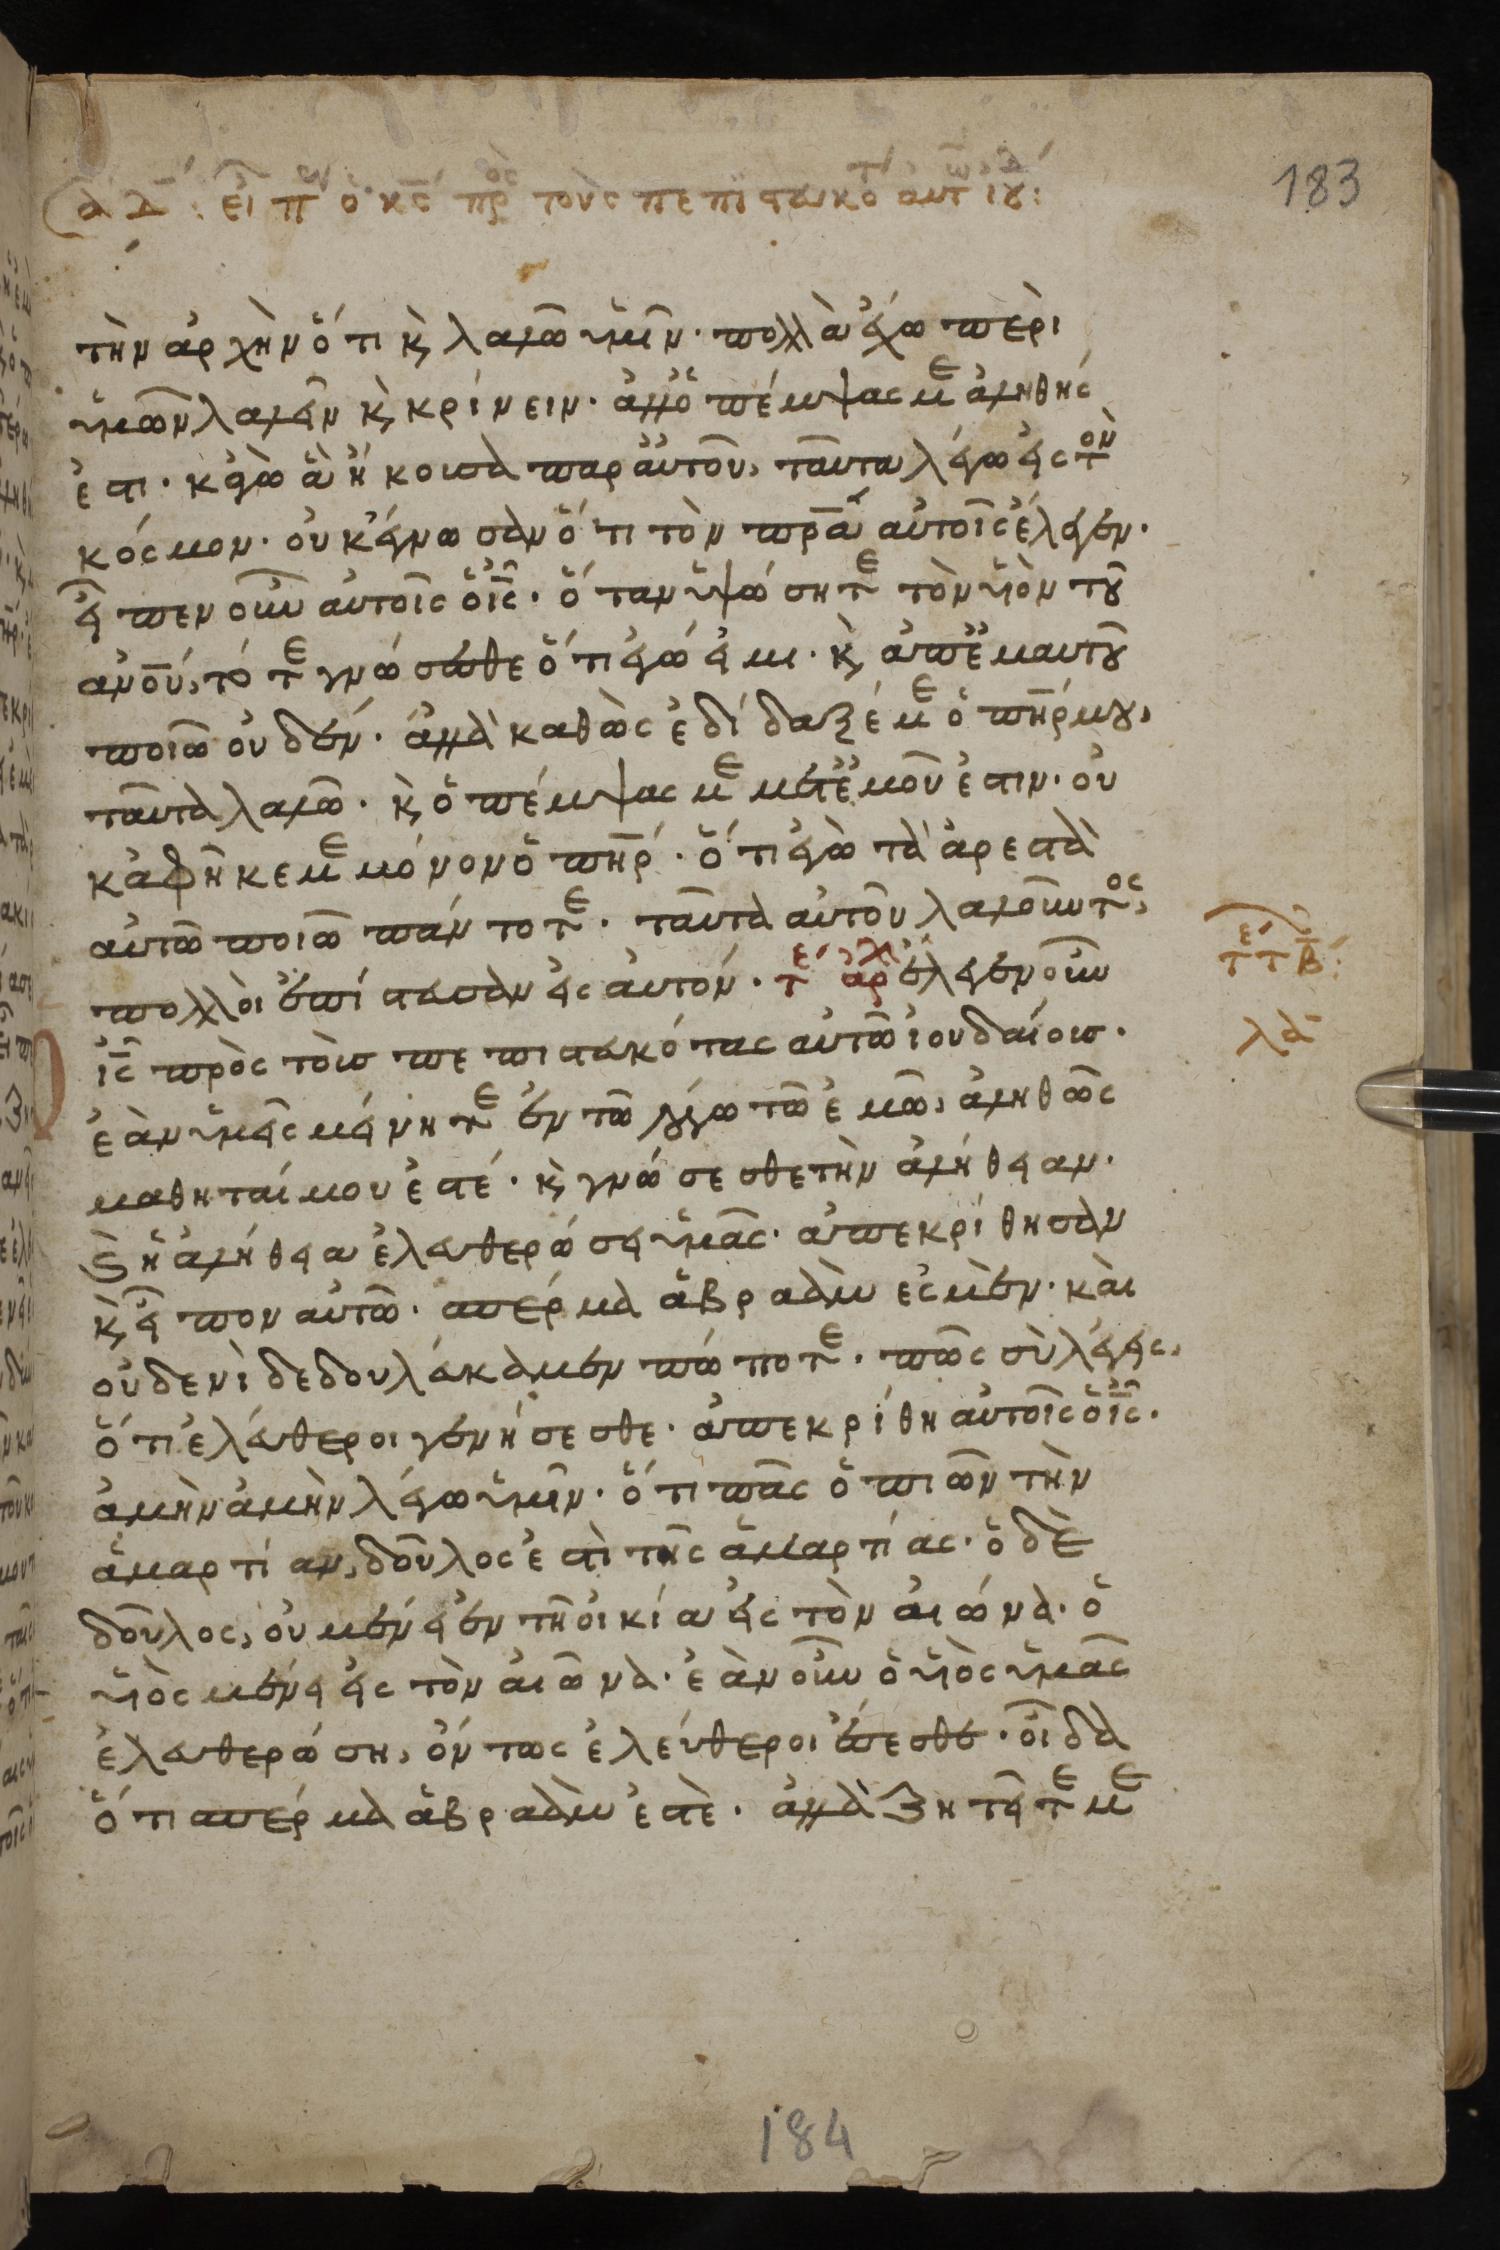 183
εἶπεν ὁ κς πρὸς τοὺς πεπιστευκότ αὐτῶ ἰου:
τὴν ἀρχὴν ὅτι κ λαλῶ ὑμῖν· πολλὰ ἔχω περὶ
ὑμῶν λαλεῖν κ κρίνειν· ἀλλ᾽ ὁ πέμψας με ἀληθής
ἐστι· κἀγὼ ἃ ἤκουσα παρ᾽ αὐτοῦ, ταῦτα λέγω εἰς τὸν
κόσμον· οὐκ ἔγνωσαν ὅτι τὸν πρα αὐτοῖς ἔλεγεν·
εἶπεν οὖν αὐτοῖς ὁ ις· ὅταν ὑψώσητε τὸν υἱὸν τοῦ
ανου, τότε γνώσεσθε ὅτι ἐγώ εἰμι· κ ἀπ᾽ ἐμαυτοῦ
ποιῶ οὐδέν· ἀλλὰ καθὼς ἐδίδαξέ με ὁ πηρ μου,
ταῦτα λαλῶ· κ ὁ πέμψας με μετ᾽ ἐμοῦ ἐστιν· οὐ
κ ἀφῆκε με μόνον ὁ πηρ· ὅτι ἐγὼ τὰ ἀρεστὰ
αὐτῶ ποιῶ πάντοτε· ταῦτα αὐτοῦ λαλοῦντος,
πολλοὶ ἐπίστευσαν εἰς αὐτόν· τε αρχ ἔλεγεν οὖν
ις πρὸς τοὺς πεπιστευκότας αὐτῶ ἰουδαίους·
ἐὰν ὑμεῖς μείνητε ἐν τῶ λόγω τῶ ἐμῶ, ἀληθῶς
μαθηταί μου ἐστέ· κ γνώσεσθε τὴν ἀλήθειαν·
κ ἡ ἀλήθεια ἐλευθερώσει ὑμᾶς· ἀπεκρίθησαν
κ εἶπον αὐτῶ· σπέρμα ἁβραὰμ ἐσμὲν· καὶ
οὐδενὶ δεδουλεύκαμεν πώποτε· πῶς σὺ λέγεις,
ὅτι ἐλεύθεροι γενήσεσθε· ἀπεκρίθη αὐτοῖς ὁ ις·
ἀμὴν ἀμὴν λέγω ὑμῖν· ὅτι πᾶς ὁ ποιῶν τὴν
ἁμαρτίαν, δοῦλος ἐστὶ τῆς ἁμαρτίας· ὁ δὲ
δοῦλος, οὐ μένει ἐν τῆ οἰκία εἰς τὸν αἰώνα· ὁ
υἱὸς μένει εἰς τὸν αἰῶνα· ἐὰν οὖν ὁ υἱὸς ὑμᾶς
ἐλευθερώση, ὄντως ἐλεύθεροι ἔσεσθε· οἶδα
ὅτι σπέρμα ἁβραὰμ ἐστὲ· ἀλλὰ ζητεῖτέ με
184